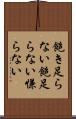 飽き足ら
ない飽足
らない慊
らない